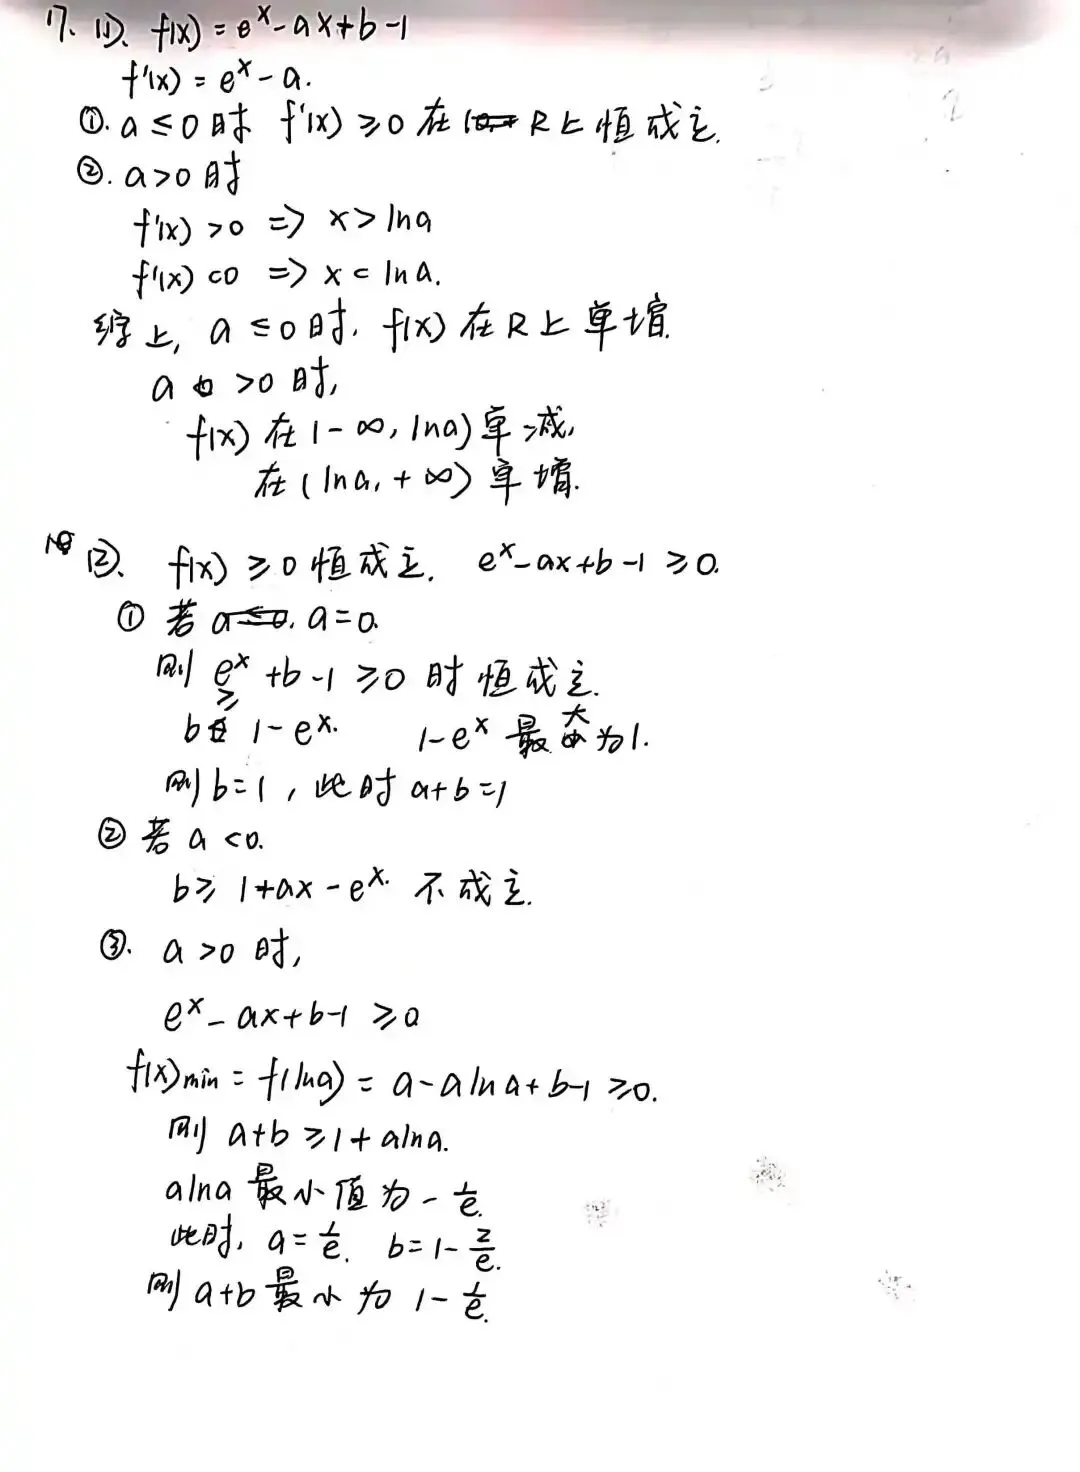 17. (1). f(x) = e^x - ax + b - 1
f'(x) = e^x - a.
①. a ≤ 0 时 f'(x) ≥ 0 在 R 上 恒成立.
②. a > 0 时
f'(x) > 0 => x > lna
f'(x) < 0 => x < lna.
综上, a ≤ 0 时, f(x) 在 R 上 单增.
a > 0 时,
f(x) 在 (-∞, lna) 单减,
在 (lna, +∞) 单增.
(2). f(x) ≥ 0 恒成立. e^x - ax + b - 1 ≥ 0.
① 若 a = 0.
则 e^x + b - 1 ≥ 0 时 恒成立.
b ≥ 1 - e^x. 1 - e^x 最大为 1.
则 b = 1, 此时 a + b = 1
② 若 a < 0.
b ≥ 1 + ax - e^x. 不成立.
③. a > 0 时,
e^x - ax + b - 1 ≥ 0
f(x)min = f(lna) = a - alna + b - 1 ≥ 0.
则 a + b ≥ 1 + alna.
alna 最小值为 - 1/e.
此时, a = 1/e. b = 1 - 2/e.
则 a + b 最小为 1 - 1/e.